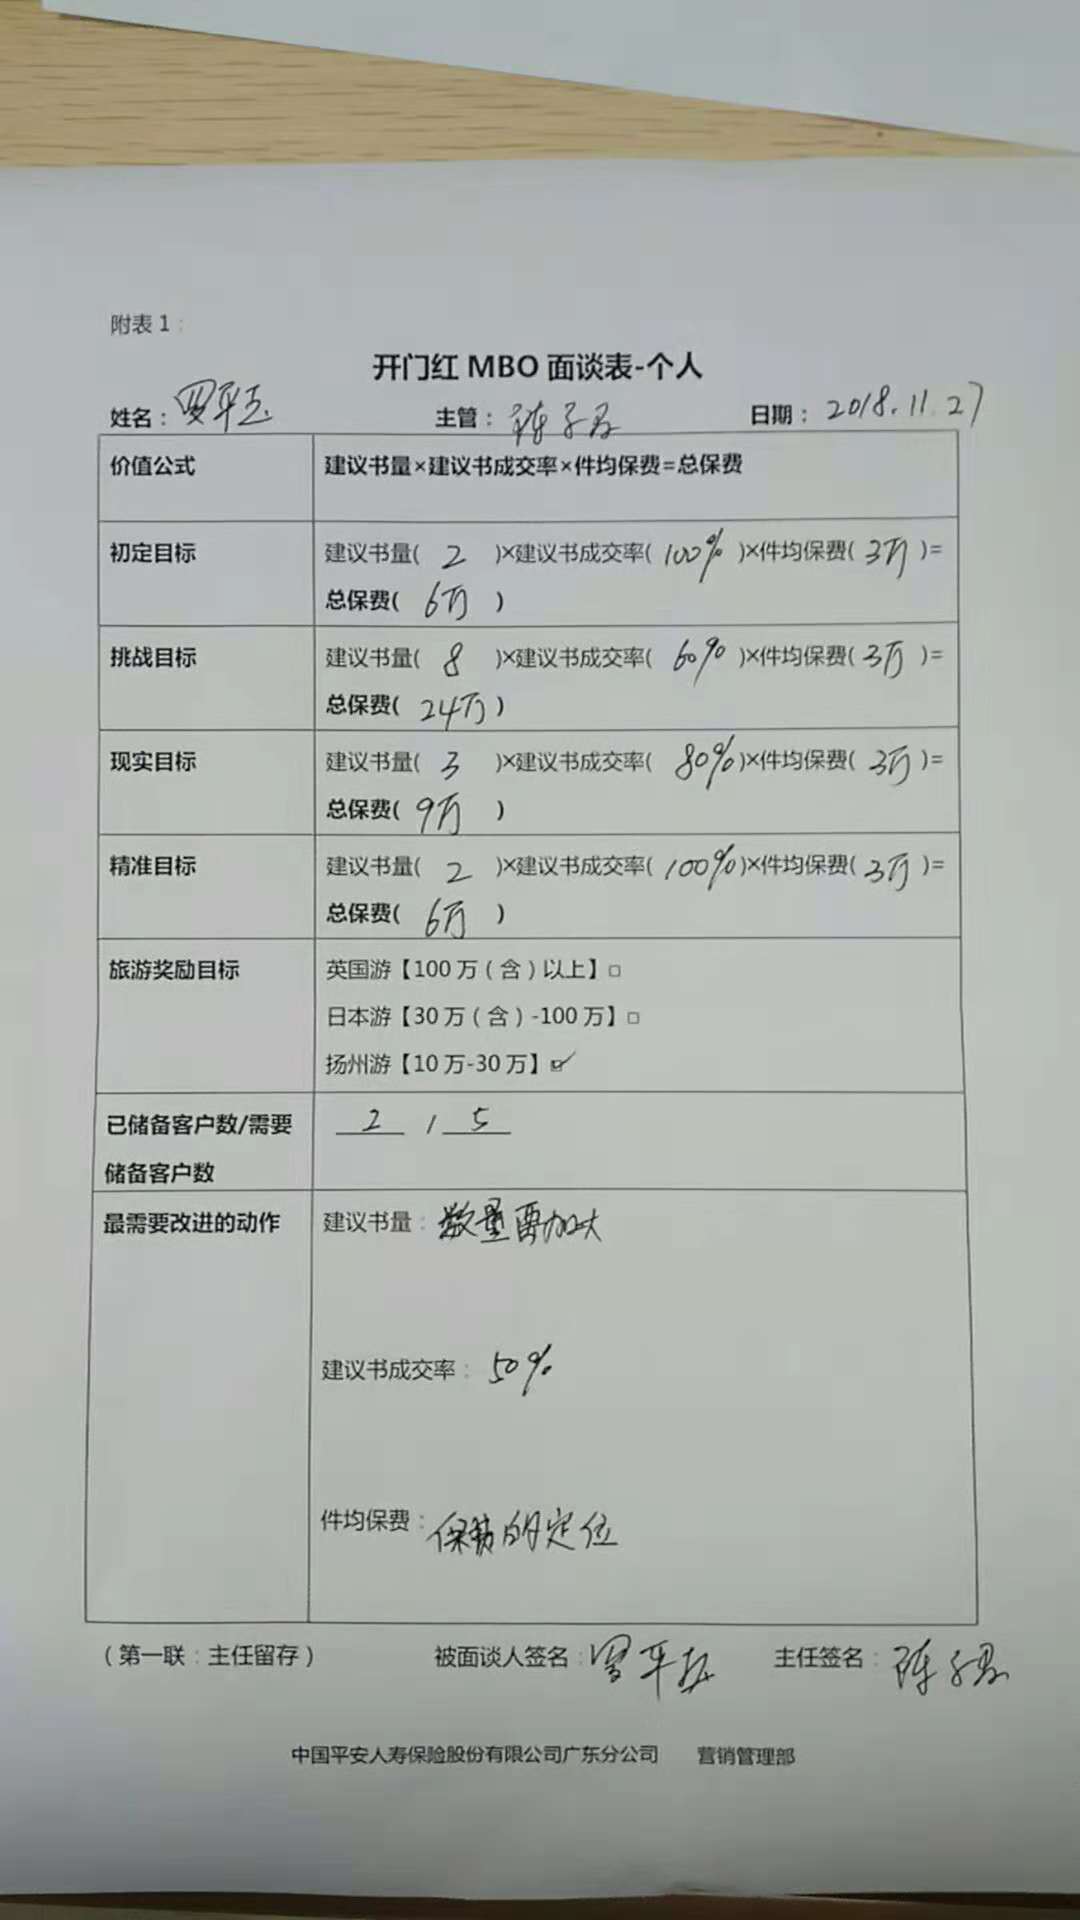 附表 1：
开门红 MBO 面谈表-个人
姓名： 主管： 陈 日期： 2018.11.27
价值公式 建议书量×建议书成交率×件均保费=总保费
初定目标 建议书量( 2 )×建议书成交率( 100% )×件均保费( 3万 )=
总保费( 6万 )
挑战目标 建议书量( 8 )×建议书成交率( 60% )×件均保费( 3万 )=
总保费( 24万 )
现实目标 建议书量( 3 )×建议书成交率( 80% )×件均保费( 3万 )=
总保费( 9万 )
精准目标 建议书量( 2 )×建议书成交率( 100% )×件均保费( 3万 )=
总保费( 6万 )
旅游奖励目标 英国游【100 万（含）以上】□
日本游【30 万（含）-100 万】□
扬州游【10 万-30 万】☑
已储备客户数/需要 2 / 5
储备客户数
最需要改进的动作 建议书量：数量要加大
建议书成交率：50%
件均保费： 的定位
（第一联：主任留存） 被面谈人签名： 主任签名：陈
中国平安人寿保险股份有限公司广东分公司 营销管理部